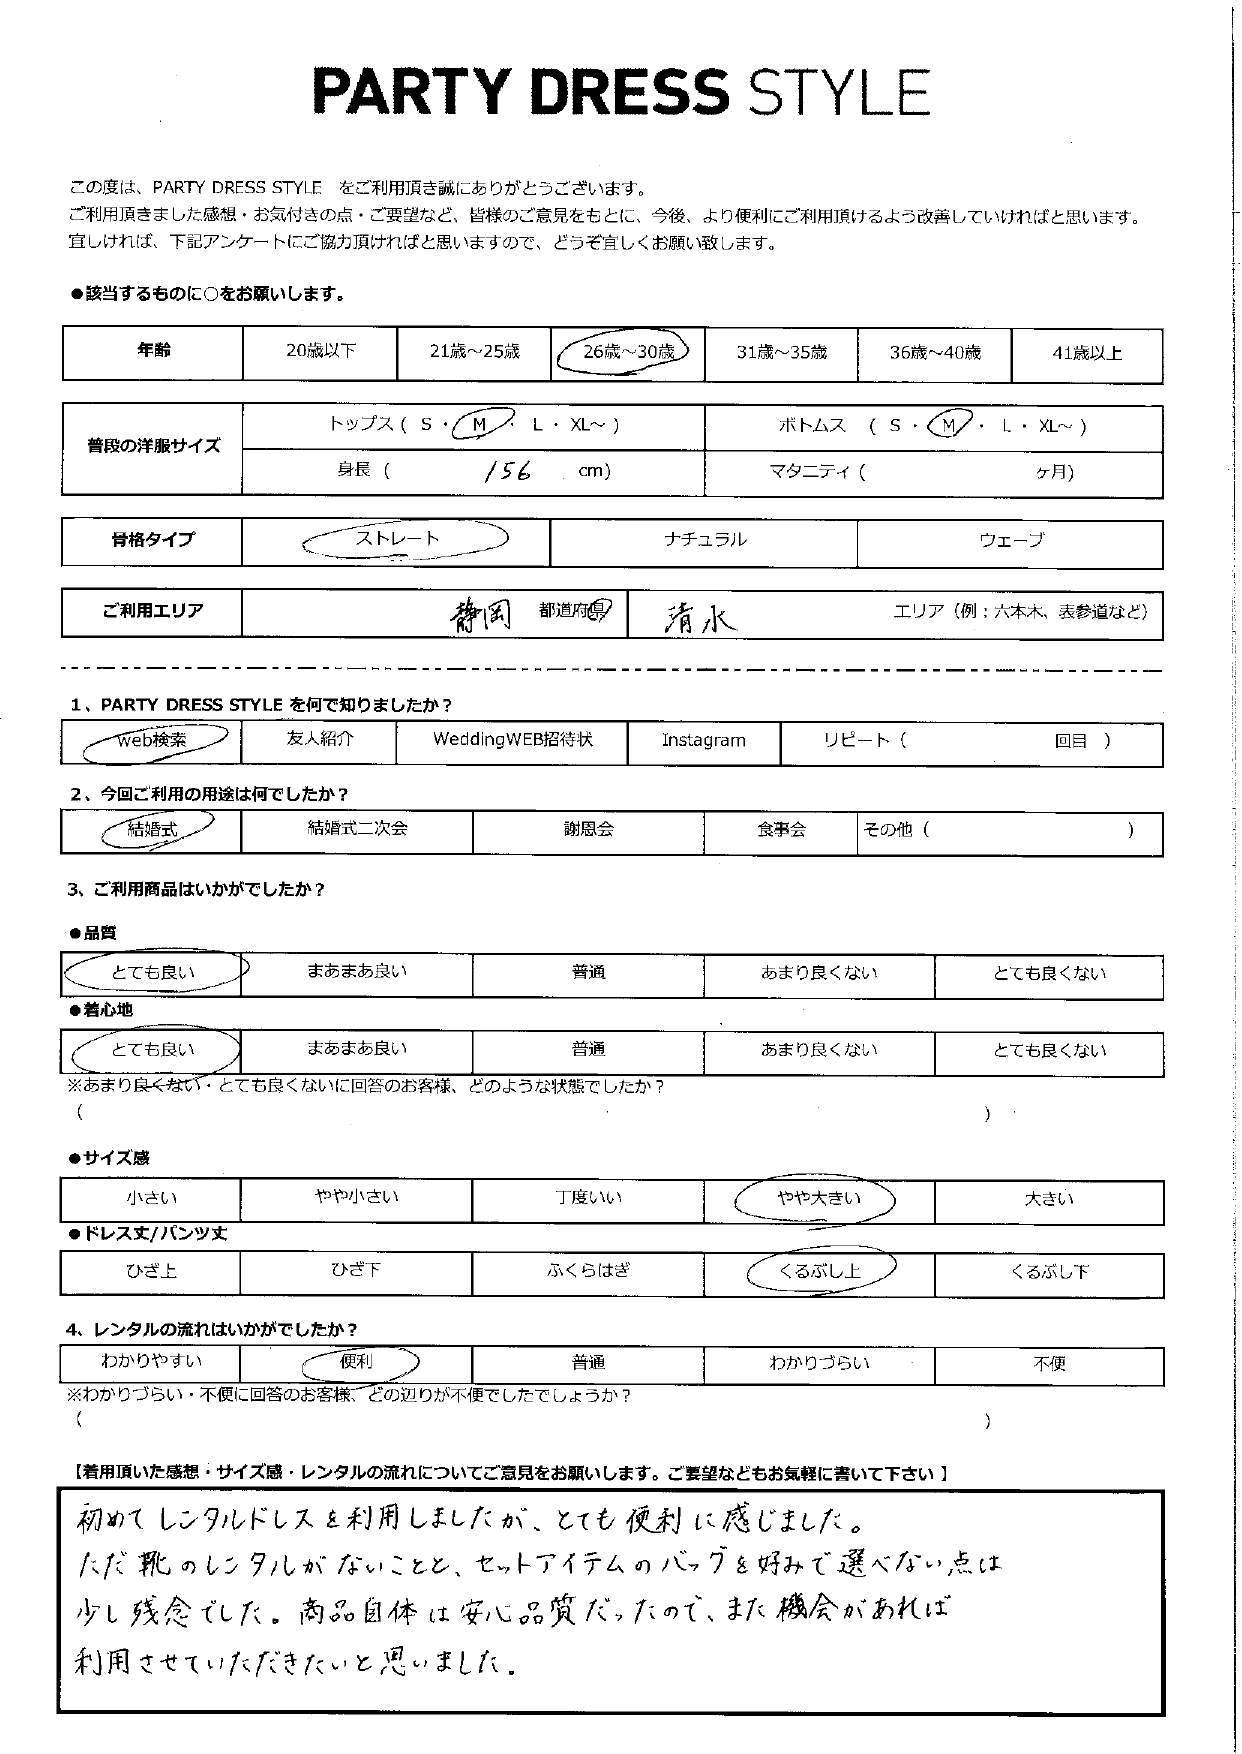 PARTY DRESS STYLE
この度は、PARTY DRESS STYLE をご利用頂き誠にありがとうございます。
ご利用頂きました感想・お気付きの点・ご要望など、皆様のご意見をもとに、今後、より便利にご利用頂けるよう改善していければと思います。
宜しければ、下記アンケートにご協力頂ければと思いますので、どうぞ宜しくお願い致します。
●該当するものに○をお願いします。
年齢 20歳以下 21歳～25歳 26歳～30歳 31歳～35歳 36歳～40歳 41歳以上
普段の洋服サイズ トップス ( S ・ M ・ L ・ XL～ ) ボトムス ( S ・ M ・ L ・ XL～ )
身長 ( 156 cm) マタニティ ( ヶ月)
骨格タイプ ストレート ナチュラル ウェーブ
ご利用エリア 静岡 都道府県 清水 エリア（例；六本木、表参道など）
1、PARTY DRESS STYLE を何で知りましたか？
web検索 友人紹介 WeddingWEB招待状 Instagram リピート（ 回目 ）
2、今回ご利用の用途は何でしたか？
結婚式 結婚式二次会 謝恩会 食事会 その他（ ）
3、ご利用商品はいかがでしたか？
●品質
とても良い まあまあ良い 普通 あまり良くない とても良くない
●着心地
とても良い まあまあ良い 普通 あまり良くない とても良くない
※あまり良くない・とても良くないに回答のお客様、どのような状態でしたか？
（ ）
●サイズ感
小さい やや小さい 丁度いい やや大きい 大きい
●ドレス丈/パンツ丈
ひざ上 ひざ下 ふくらはぎ くるぶし上 くるぶし下
4、レンタルの流れはいかがでしたか？
わかりやすい 便利 普通 わかりづらい 不便
※わかりづらい・不便に回答のお客様、どの辺りが不便でしたでしょうか？
（ ）
【着用頂いた感想・サイズ感・レンタルの流れについてご意見をお願いします。ご要望などもお気軽に書いて下さい 】
初めてレンタルドレスを利用しましたが、とても便利に感じました。
ただ靴のレンタルがないことと、セットアイテムのバッグを好みで選べない点は
少し残念でした。商品自体は安心品質だったので、また機会があれば
利用させていただきたいと思いました。